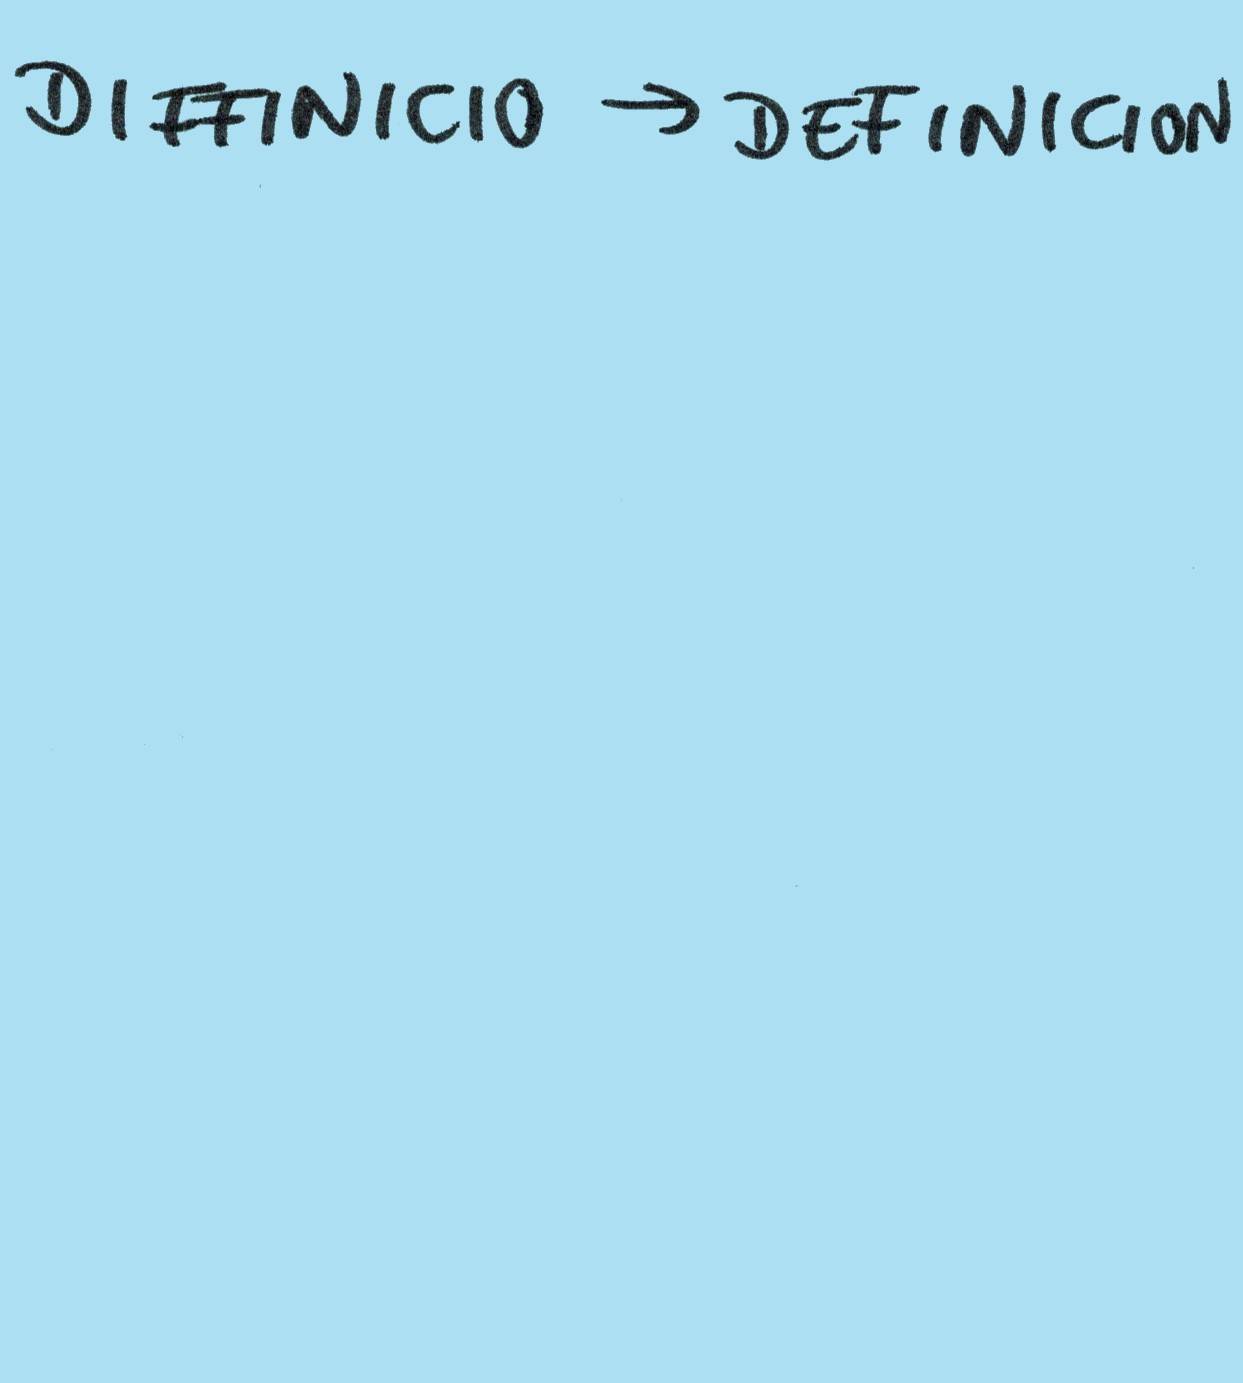 DIFFINICIO → DEFINICION